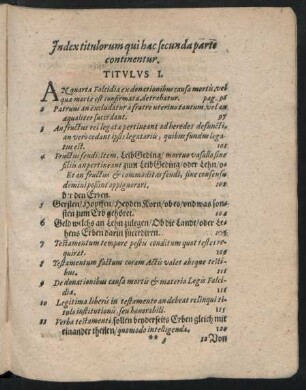 Index titulorum qui hac secunda parte
continentur.
TITVLVS I.
AN quarta Falcidia ex donationibus causa mortis, vel
quæ morte est confirmata, detrahatur. pag. 96
2 Patruus an excludatur à fratre uterino tantum, vel an
æqualiter succedant. 97
3 An fructus rei legatæ pertineant ad heredes defuncti,
an verò cedant ipsi legatario, quibus fundus lega-
tus est. 101
4 Fructus feudi. Item, LeibGeding / mortuo vasallo sine
filiis an pertineant zum LeibGeding / oder Lehn /
Et an fructus & commoditas feudi, sine consensu
domini possint oppignorari. 102
den Erben.
5 Gersten / Hopffen / Heyden Korn / obs / und was son-
sten zum Erb gehöret. 105
6 Geld welchs an Lehn zulegen / Ob die Landt / oder Le-
hens Erben darin succediren. 106
7 Testamentum tempore pestis conditum quot testes re-
quirat. 108
8 Testamentum factum coram Actis valet absque testi-
bus.
9 De donationibus causa mortis & materia Legis Falci-
diæ.
10 Legitima liberis in testamento an debeat relinqui ti-
tulo institutionis, seu honorabili.
11 Verba testamenti sollen beyderseits Erben gleich mit
einander theilen / quomodo intelligenda. 120
** 12 Von